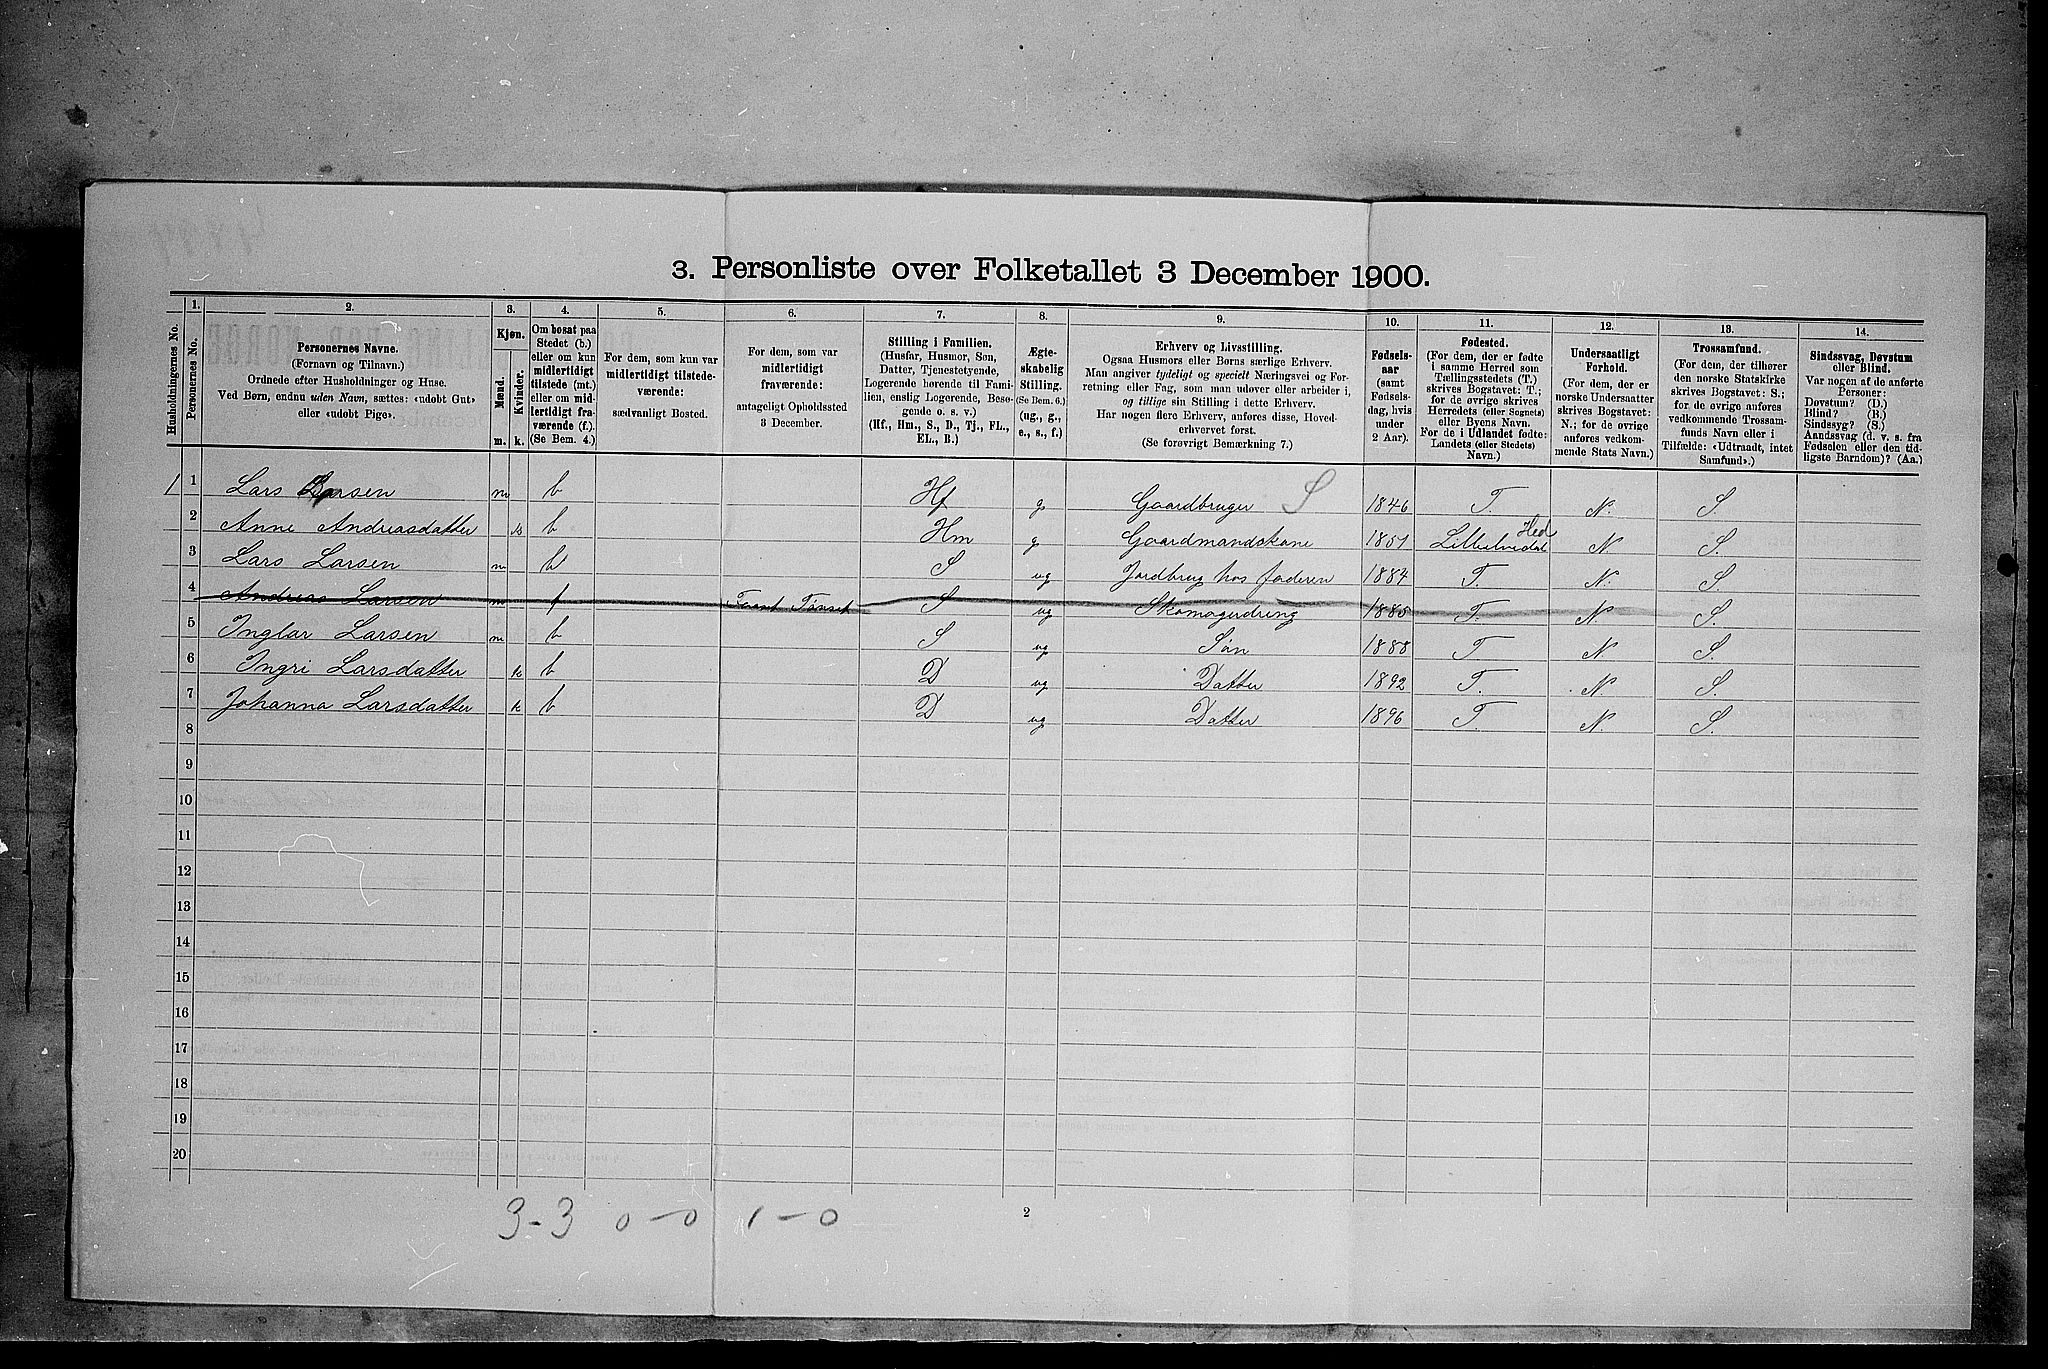 3. Personliste over Folketallet 3 December 1900.
Husholdningernes No.
1.
Personernes No.
2.
Personernes Navne.
(Fornavn og Tilnavn.)
Ordnede efter Husholdninger og Huse.
Ved Børn, endnu uden Navn, sættes: «udøbt Gut»
eller «udøbt Pige».
3.
Kjøn.
Mænd.
Kvinder.
m.
k.
4.
Om bosat paa
Stedet (b.)
eller om kun
midlertidigt
tilstede (mt.)
eller om mid-
lertidigt fra-
værende (f.).
(Se Bem. 4.)
5.
For dem, som kun var
midlertidigt tilstede-
værende:
sædvanligt Bosted.
6.
For dem, som var
midlertidigt
fraværende:
antageligt Opholdssted
3 December.
7.
Stilling i Familien.
(Husfar, Husmor, Søn,
Datter, Tjenestetyende,
Logerende hørende til Fami-
lien, enslig Logerende, Besø-
gende o. s. v.)
(Hf., Hm., S., D., Tj., FL.,
EL., B.)
8.
Ægte-
skabelig
Stilling.
(Se Bem. 6.)
(ug., g.,
e., s., f.)
9.
Erhverv og Livsstilling.
Ogsaa Husmors eller Børns særlige Erhverv.
Man angiver tydeligt og specielt Næringsvei og For-
retning eller Fag, som man udøver eller arbeider i,
og tillige sin Stilling i dette Erhverv.
Har nogen flere Erhverv, anføres disse, Hoved-
erhvervet først.
(Se forøvrigt Bemærkning 7.)
10.
Fødsels-
aar
(samt
Fødsels-
dag, hvis
under
2 Aar).
11.
Fødested.
(For dem, der er fødte
i samme Herred som
Tællingsstedets (T.)
skrives Bogstavet: T.;
for de øvrige skrives
Herredets (eller Sognets)
eller Byens Navn.
For de i Udlandet fødte:
Landets (eller Stedets)
Navn.)
12.
Undersaatligt
Forhold.
(For dem, der er
norske Undersaatter
skrives Bogstavet:
N.; for de øvrige
anføres vedkom-
mende Stats Navn.)
13.
Trossamfund.
(For dem, der tilhører
den norske Statskirke
skrives Bogstavet: S.;
for de øvrige anføres
vedkommende Trossam-
funds Navn eller i
Tilfælde: «Udtraadt, intet
Samfund».)
14.
Sindssvag, Døvstum
eller Blind.
Var nogen af de anførte
Personer:
Døvstum? (D.)
Blind? (B.)
Sindssyg? (S.)
Aandssvag (d. v. s. fra
Fødselen eller den tid-
ligste Barndom)? (Aa.)
1 1 Lars Larsen m b Hf g Gaardbruger S 1846 T. N. S.
2 Anne Andreasdatter k b Hm g Gaardmandskone 1851 Lilleelvedal Hed N S.
3 Lars Larsen m b S ug Jordbrug hos faderen 1884 T. N. S.
4 Andreas Larsen m f Tønset S ug Skomagerdreng 1885 T. N S.
5 Inglar Larsen m b S ug Søn 1888 T N. S.
6 Ingri Larsdatter k b D ug Datter 1892 T. N. S.
7 Johanna Larsdatter k b D ug Datter 1896 T. N. S.
8
9
10
11
12
13
14
15
16
17
18
19
20
3-3 0-0 1-0
2